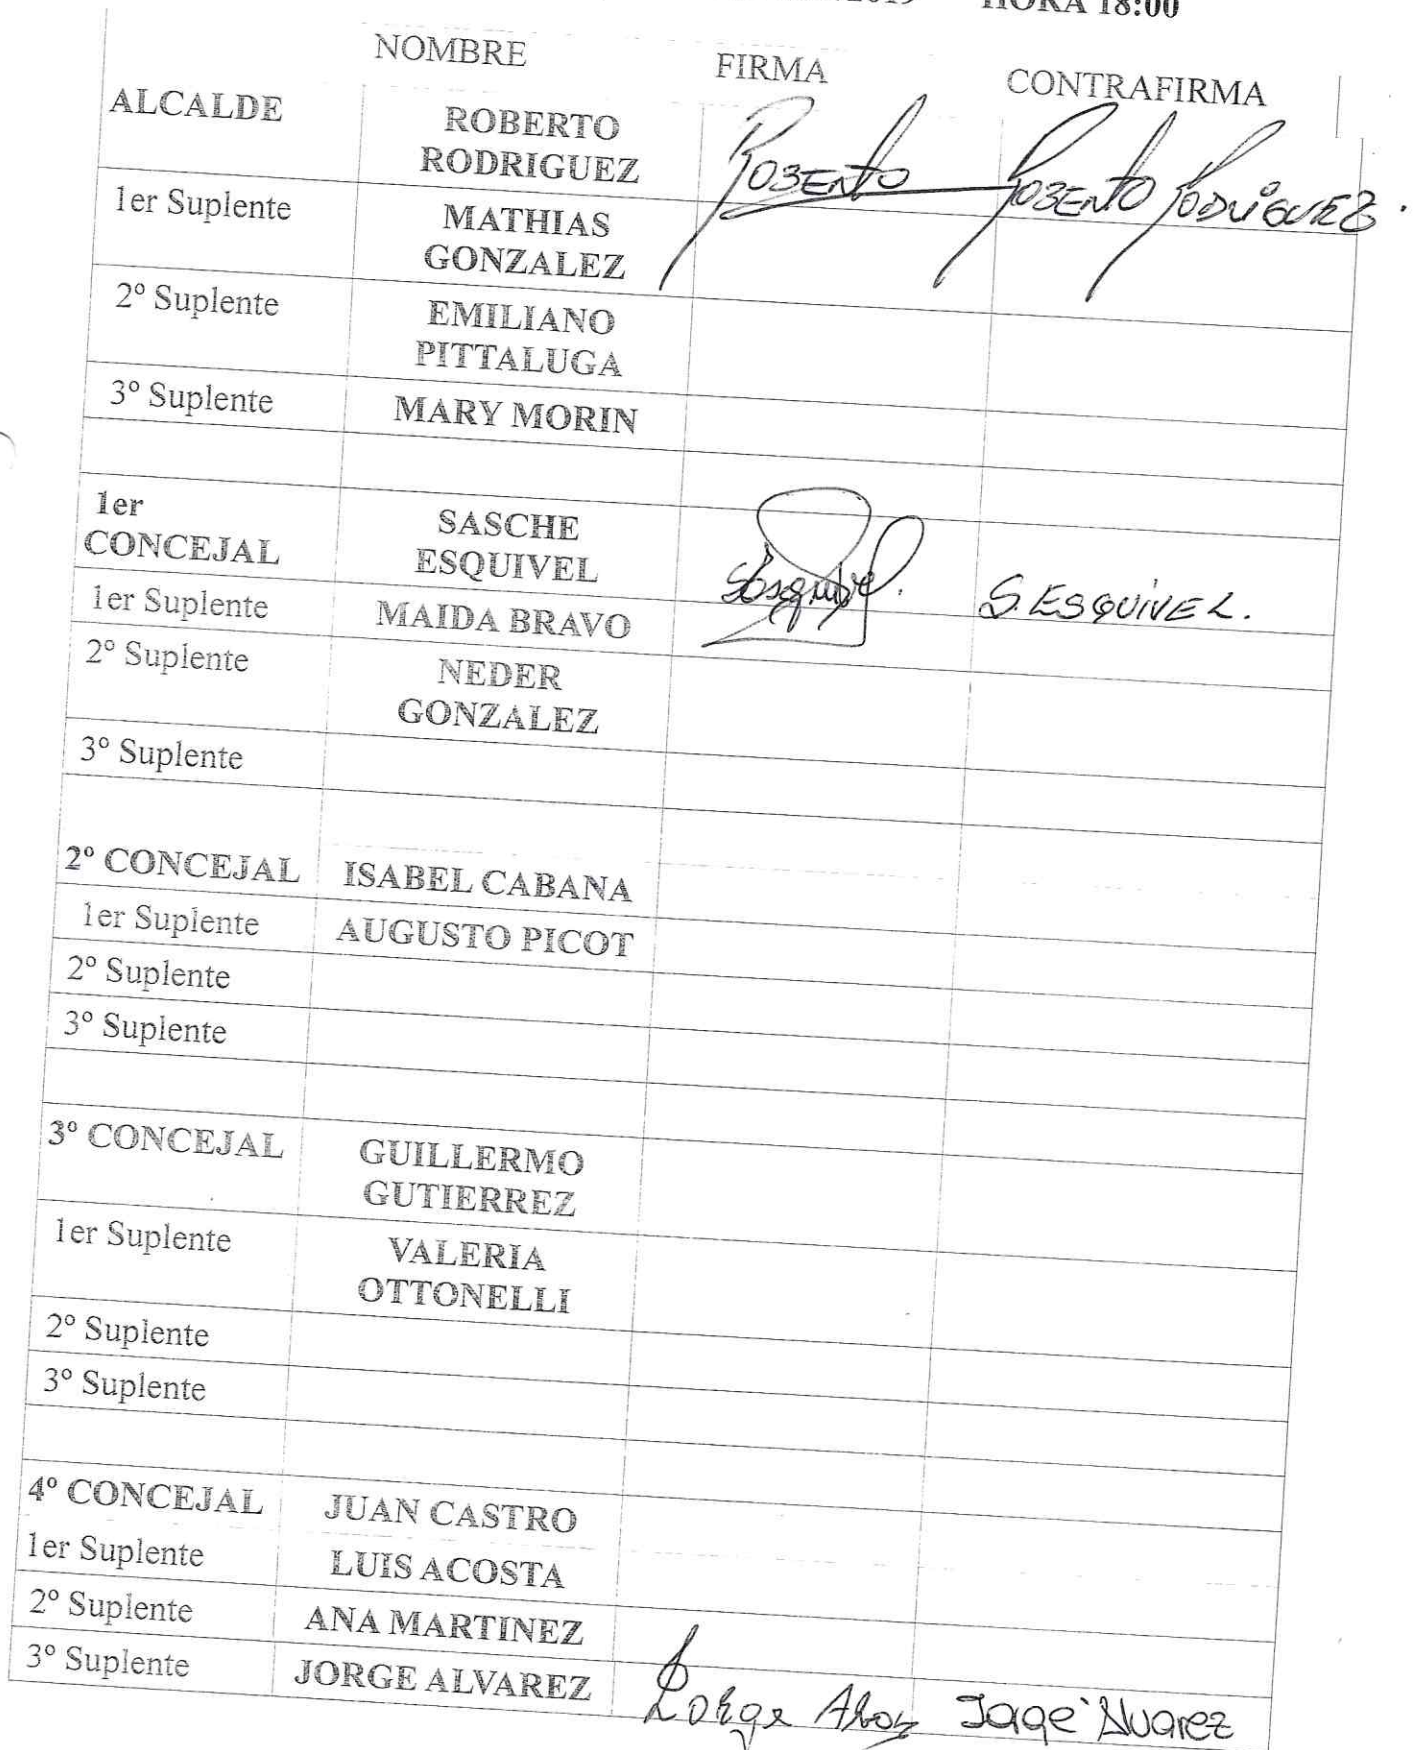 2019 HORA 18:00
NOMBRE FIRMA CONTRAFIRMA
ALCALDE ROBERTO
RODRIGUEZ ROBERTO ROBERTO RODRIGUEZ.
1er Suplente MATHIAS
GONZALEZ
2º Suplente EMILIANO
PITTALUGA
3º Suplente MARY MORIN
1er
CONCEJAL SASCHE
ESQUIVEL SEsquivel. S. ESQUIVEL.
1er Suplente MAIDA BRAVO
2º Suplente NEDER
GONZALEZ
3º Suplente
2º CONCEJAL ISABEL CABANA
1er Suplente AUGUSTO PICOT
2º Suplente
3º Suplente
3º CONCEJAL GUILLERMO
GUTIERREZ
1er Suplente VALERIA
OTTONELLI
2º Suplente
3º Suplente
4º CONCEJAL JUAN CASTRO
1er Suplente LUIS ACOSTA
2º Suplente ANA MARTINEZ
3º Suplente JORGE ALVAREZ Jorge Alvarez